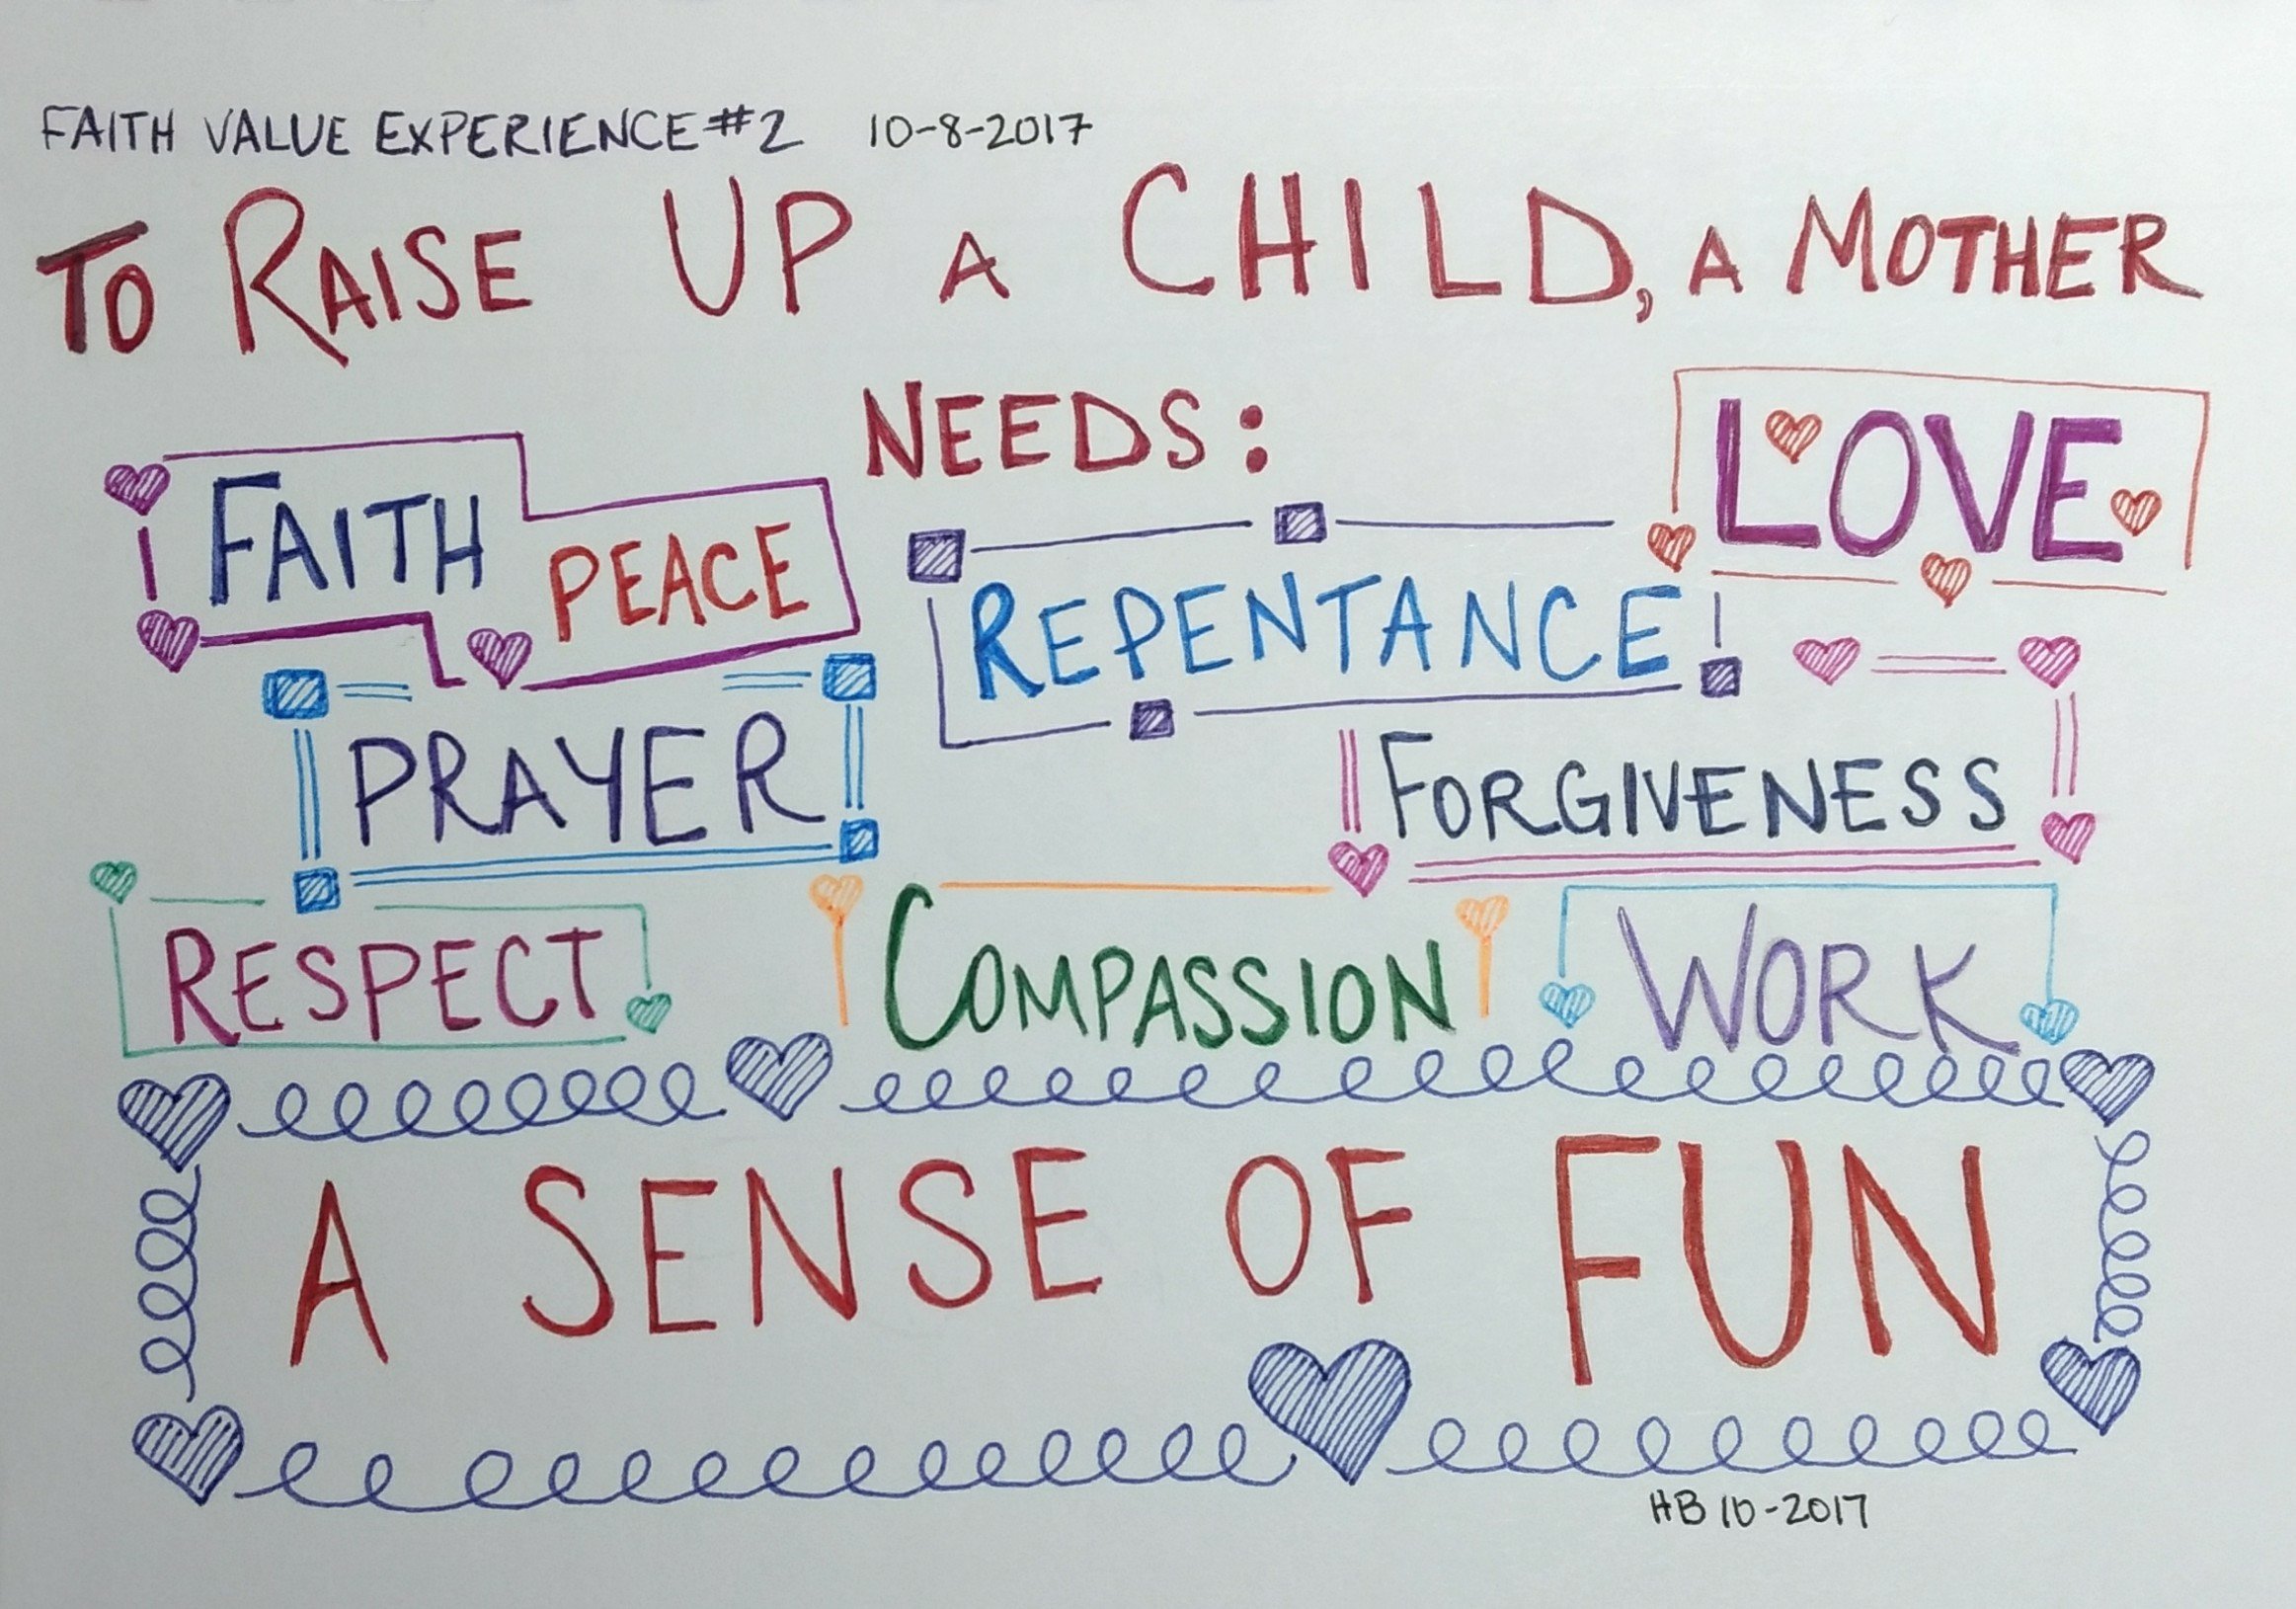 FAITH VALUE EXPERIENCE #2 10-8-2017
TO RAISE UP A CHILD, A MOTHER
NEEDS:
LOVE
FAITH
PEACE
REPENTANCE
PRAYER
FORGIVENESS
RESPECT
COMPASSION
WORK
A SENSE OF FUN
HB 10-2017